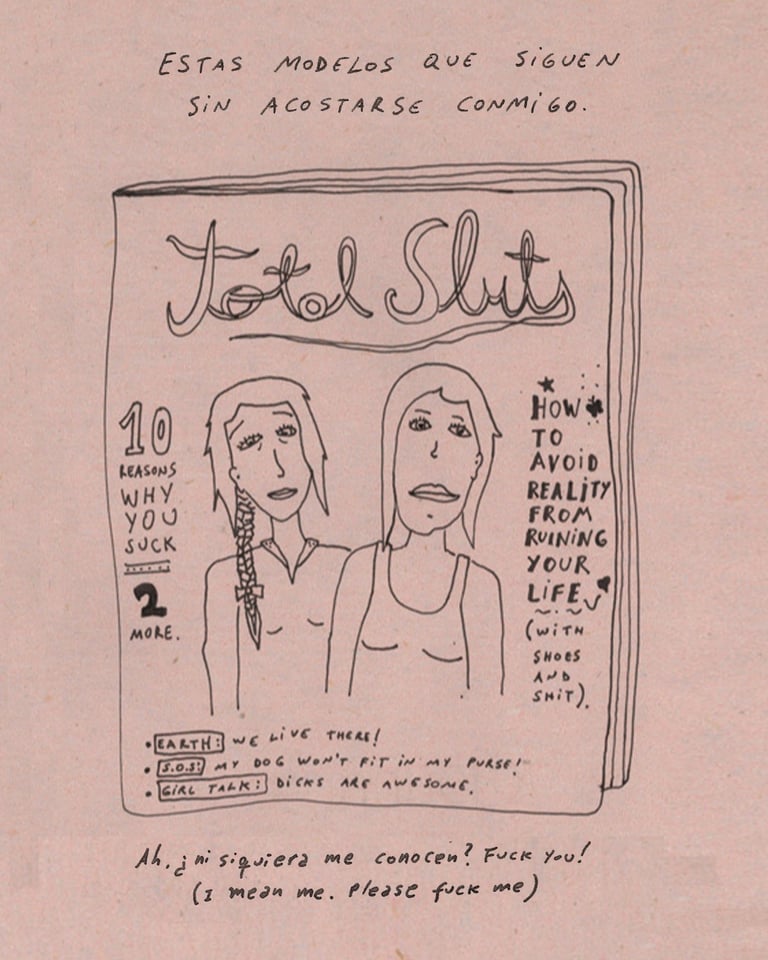 ESTAS MODELOS QUE SIGUEN
SIN ACOSTARSE CONMIGO.
Total Sluts
10
REASONS
WHY
YOU
SUCK
2
MORE.
HOW
TO
AVOID
REALITY
FROM
RUINING
YOUR
LIFE
(WITH
SHOES
AND
SHIT).
• EARTH: WE LIVE THERE!
• S.O.S: MY DOG WON'T FIT IN MY PURSE!
• GIRL TALK: DICKS ARE AWESOME.
Ah, ¿ni siquiera me conocen? Fuck you!
(I mean me. Please fuck me)